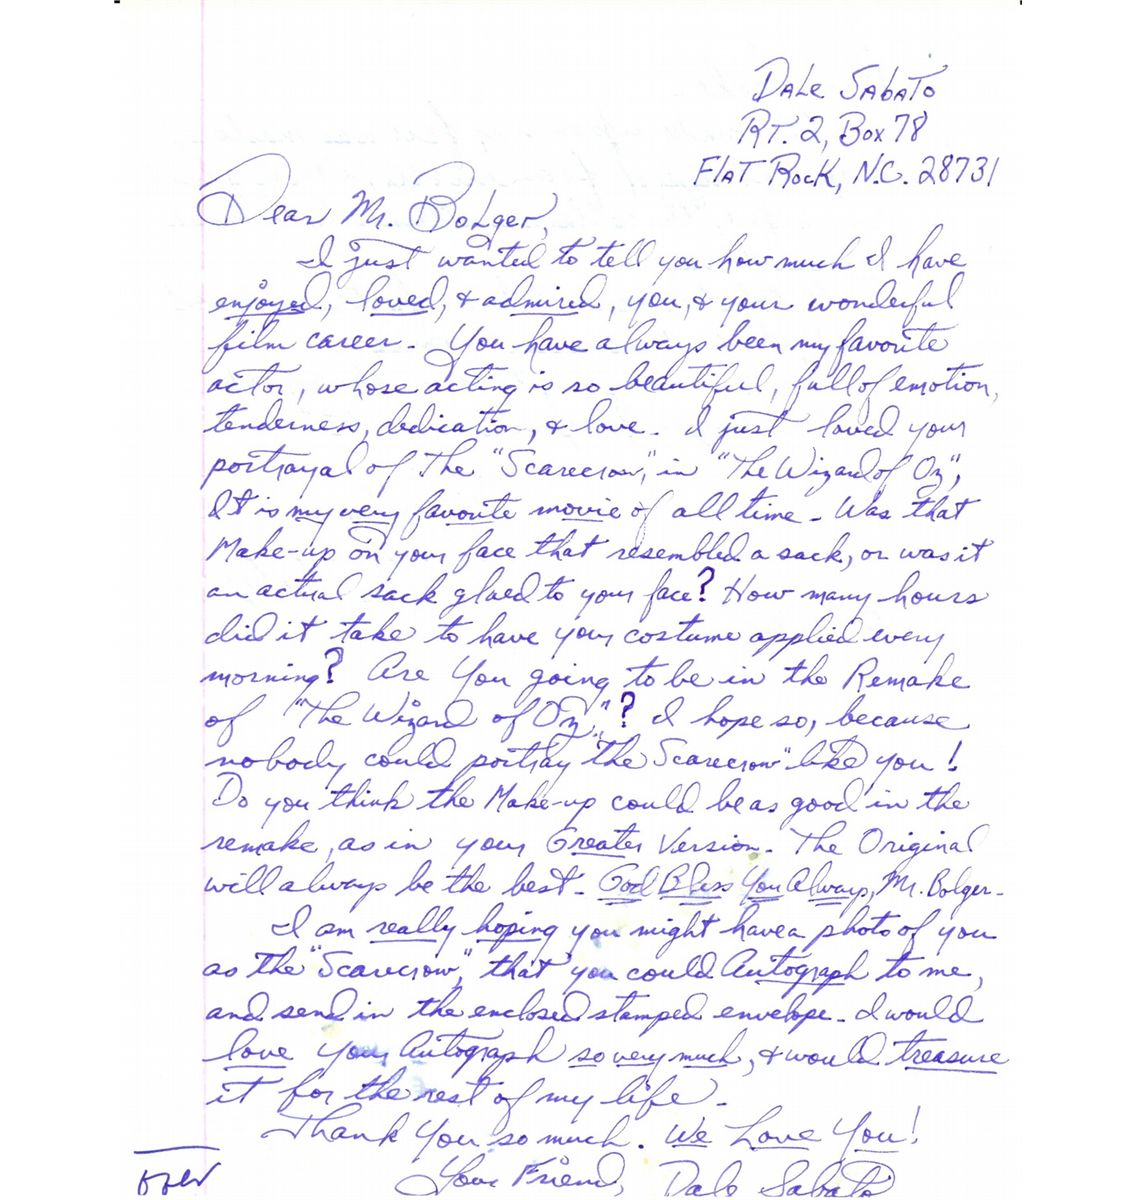 Dale Sabato
Rt. 2, Box 78
Flat Rock, N.C. 28731
Dear Mr. Bolger,
I just wanted to tell you how much I have
enjoyed, loved, & admired, you, & your wonderful
film career. You have always been my favorite
actor, whose acting is so beautiful, full of emotion,
tenderness, dedication, & love. I just loved your
portrayal of The "Scarecrow," in "The Wizard of Oz",
It is my very favorite movie of all time. Was that
Make-up on your face that resembled a sack, or was it
an actual sack glued to your face? How many hours
did it take to have your costume applied every
morning? Are You going to be in the Remake
of "The Wizard of Oz,"? I hope so, because
nobody could portray the "Scarecrow" like you!
Do you think the Make-up could be as good in the
remake, as in your Greater Version. The Original
will always be the best. God Bless You Always, Mr. Bolger.
I am really hoping you might have a photo of you
as the "Scarecrow," that you could Autograph to me,
and send in the enclosed stamped envelope. I would
love your Autograph so very much, & would treasure
it for the rest of my life.
Thank You so much. We Love You!
Your Friend, Dale Sabato
over